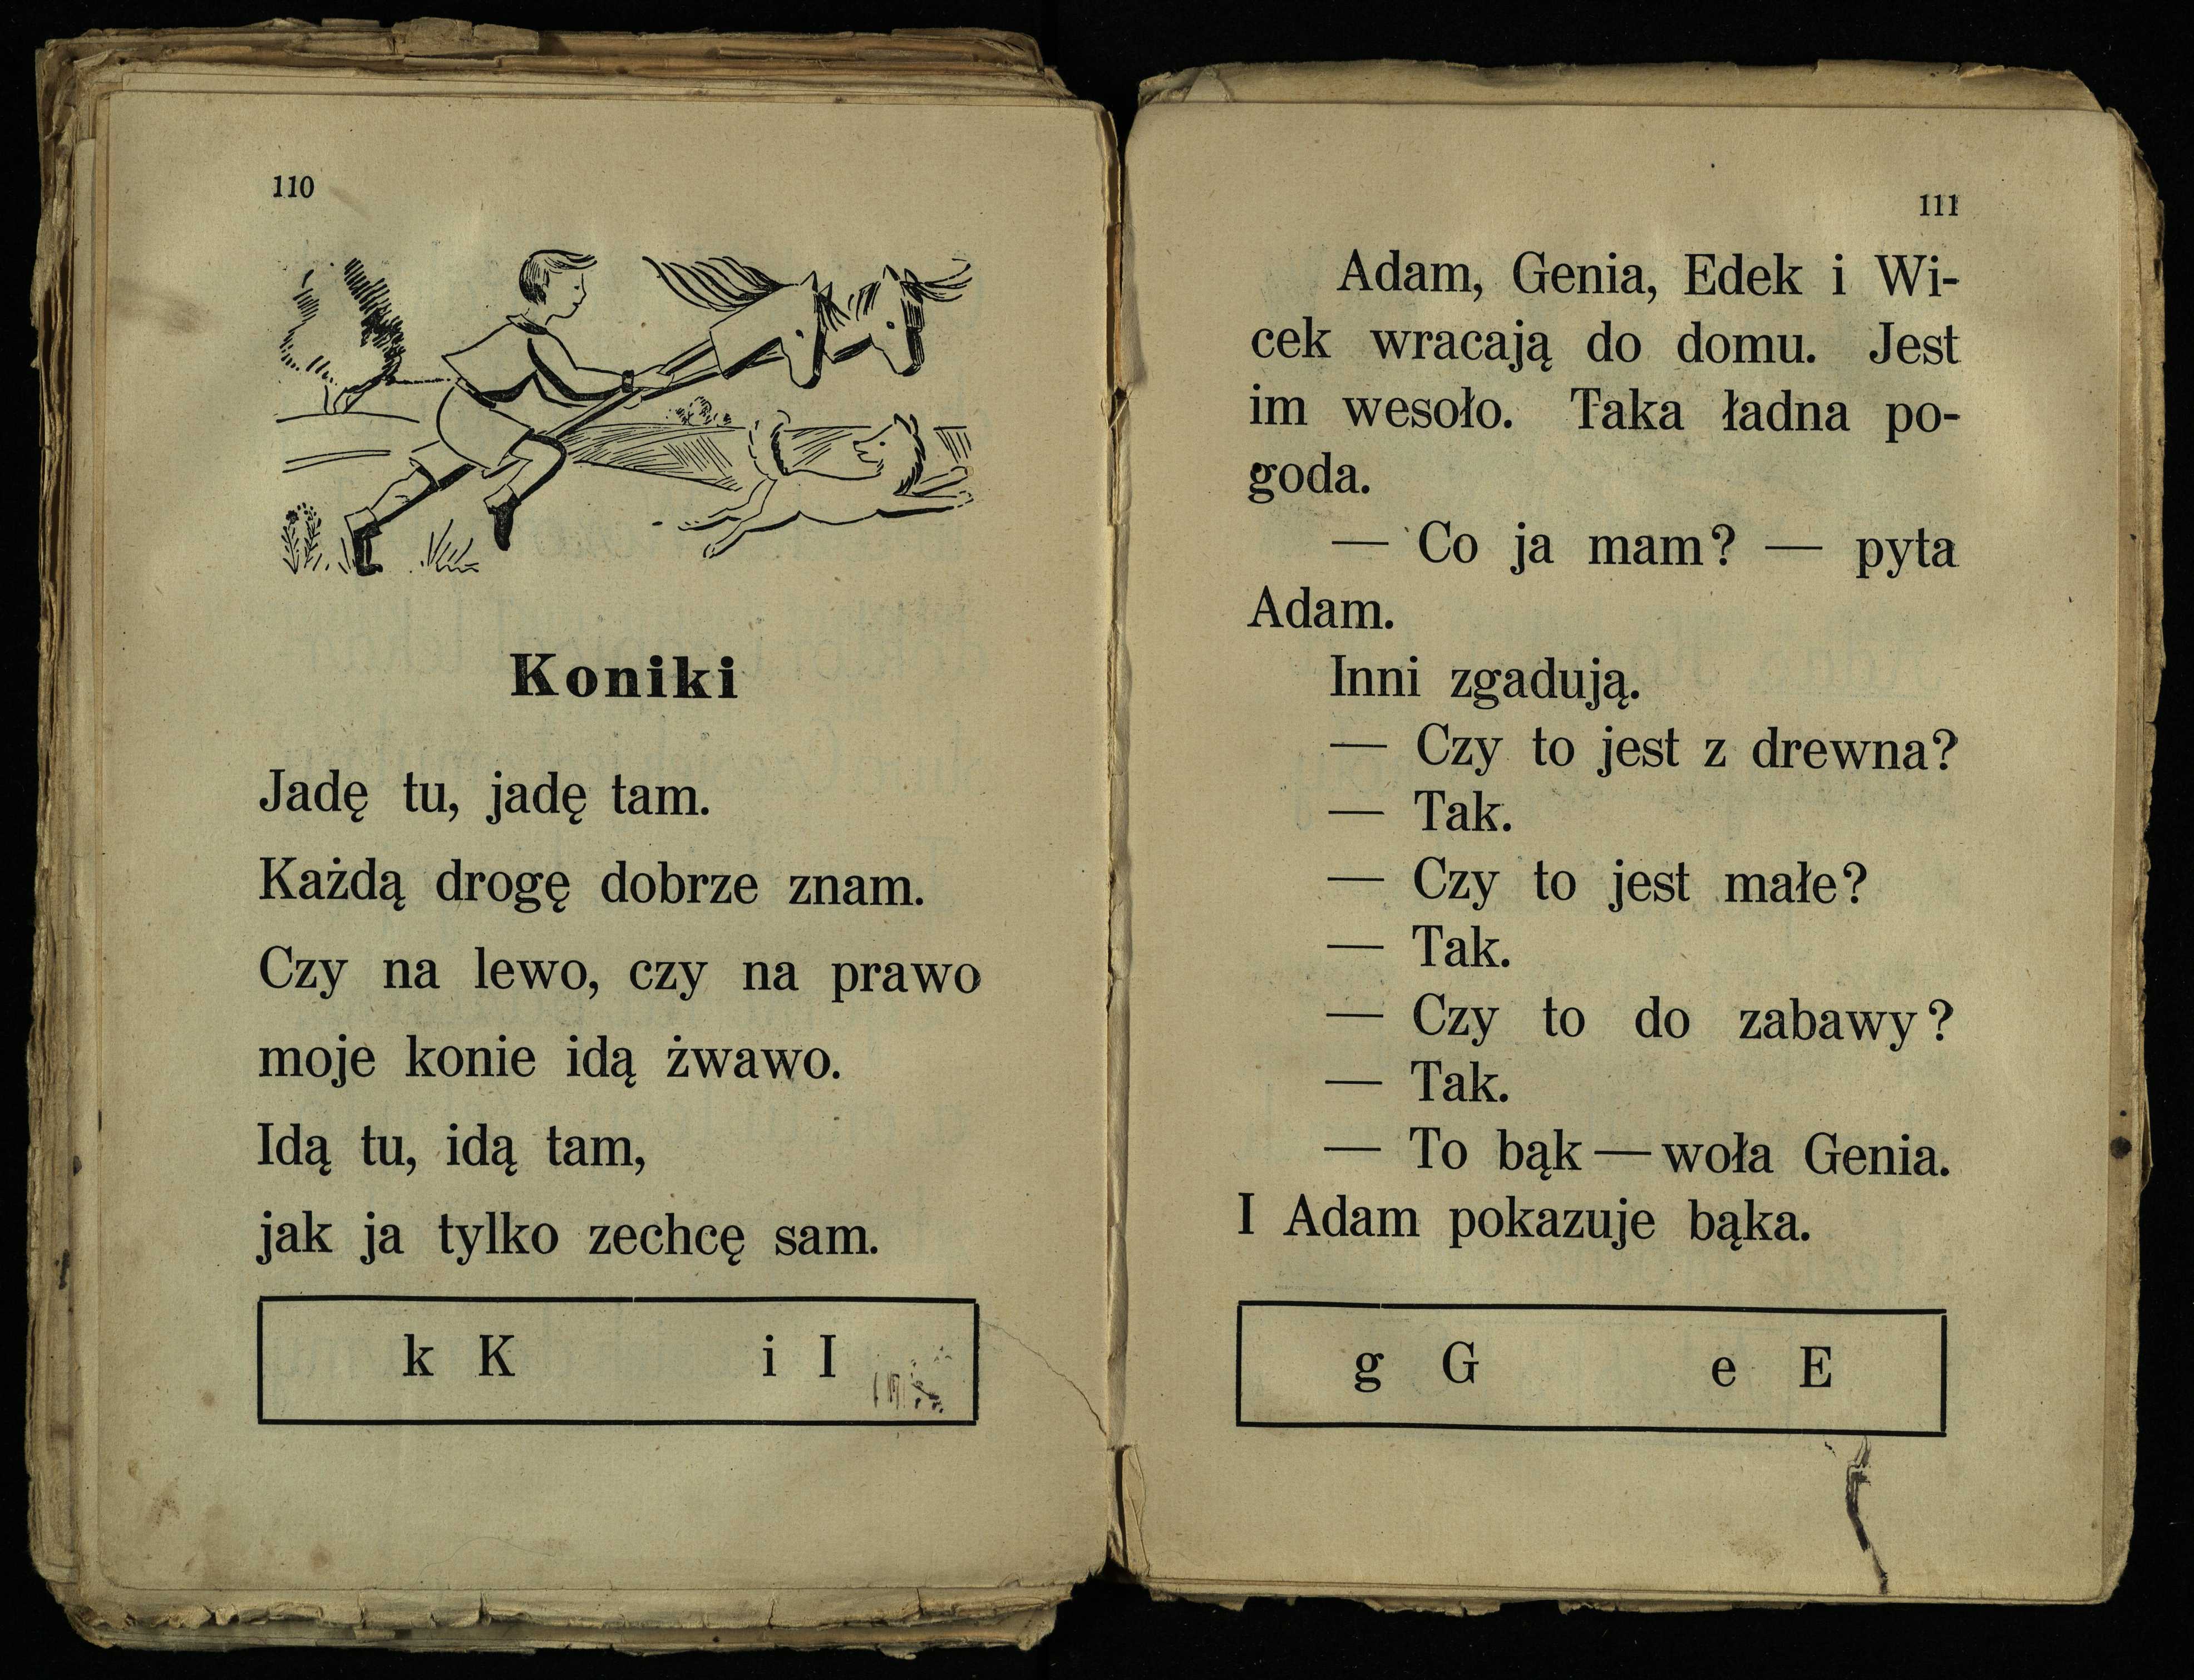 110
Koniki
Jadę tu, jadę tam.
Każdą drogę dobrze znam.
Czy na lewo, czy na prawo
moje konie idą żwawo.
Idą tu, idą tam,
jak ja tylko zechcę sam.
k K i I
111
Adam, Genia, Edek i Wi-
cek wracają do domu. Jest
im wesoło. Taka ładna po-
goda.
— Co ja mam? — pyta
Adam.
Inni zgadują.
— Czy to jest z drewna?
— Tak.
— Czy to jest małe?
— Tak.
— Czy to do zabawy?
— Tak.
— To bąk — woła Genia.
I Adam pokazuje bąka.
g G e E